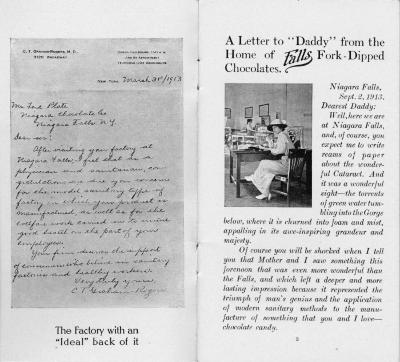 C. T. Graham-Rogers, M. D.
BROADWAY
New York, March 31st/1913
Mr Ford Plate
Niagara Chocolate Co
Niagara Falls N.Y.
Dear Sir:
After visiting your factory at
Niagara Falls, I feel that as a
physician and sanitarian,
the model sanitary type of
factory in which your product is
manufactured as well as for the
good health on the part of your
employees.
Your firm deserves the support
factories and healthy workers.
Very truly yours,
C. T. Graham Rogers
The Factory with an
"Ideal" back of it
A Letter to "Daddy" from the
Home of Falls Fork-Dipped
Chocolates.
Niagara Falls,
Sept. 2, 1913.
Dearest Daddy:
Well, here we are
at Niagara Falls,
and, of course, you
expect me to write
reams of paper
about the wonder-
ful Cataract. And
it was a wonderful
sight—the torrents
of green water tum-
bling into the Gorge
below, where it is churned into foam and mist,
appalling in its awe-inspiring grandeur and
majesty.
Of course you will be shocked when I tell
you that Mother and I saw something this
forenoon that was even more wonderful than
the Falls, and which left a deeper and more
lasting impression because it represented the
triumph of man's genius and the application
of modern sanitary methods to the manu-
facture of something that you and I love—
chocolate candy.